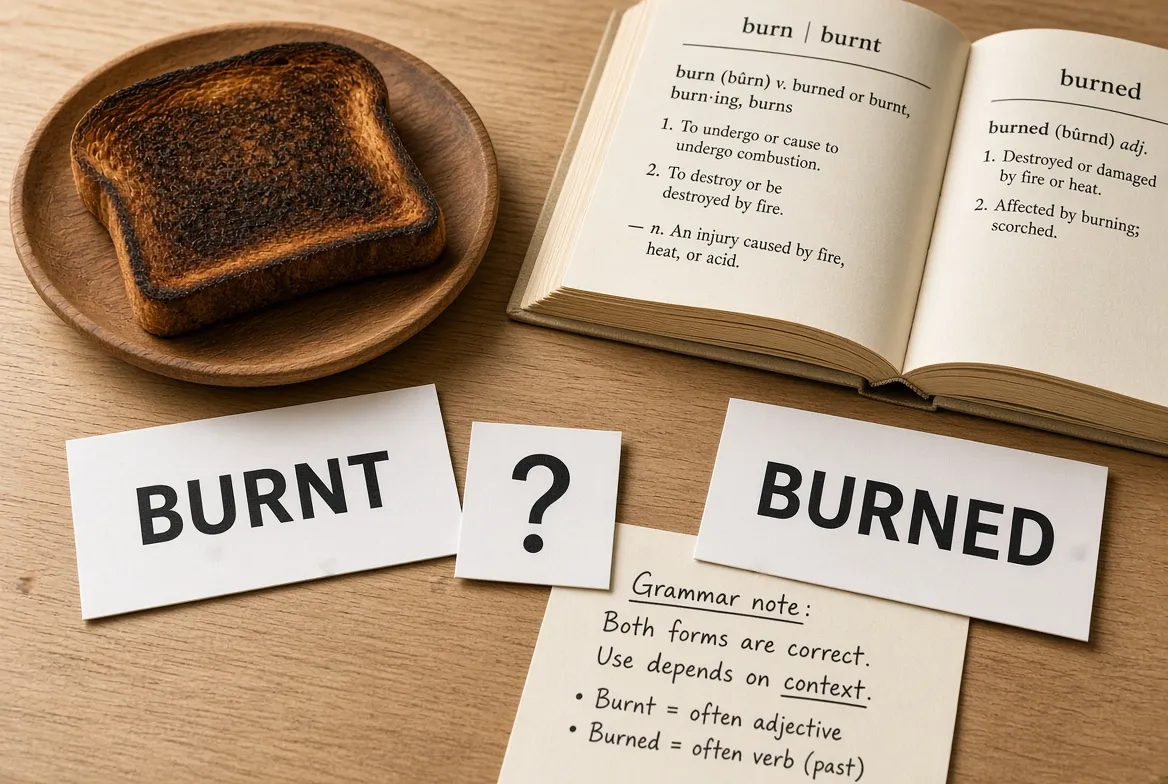 burn | burnt
burn (bûrn) v. burned or burnt,
burn·ing, burns
1. To undergo or cause to
undergo combustion.
2. To destroy or be
destroyed by fire.
— n. An injury caused by fire,
heat, or acid.
burned
burned (bûrnd) adj.
1. Destroyed or damaged
by fire or heat.
2. Affected by burning;
scorched.
BURNT
?
BURNED
Grammar note:
Both forms are correct.
Use depends on context.
• Burnt = often adjective
• Burned = often verb (past)